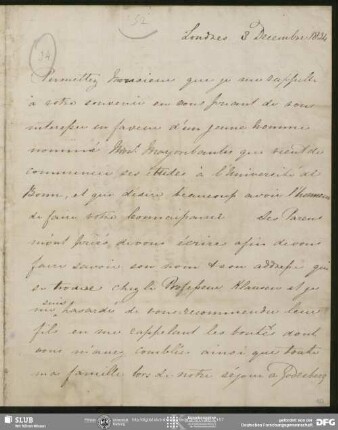 52
34
Londres 3 Decembre 1834
Permettez Monsieur que je me rappelle
à votre souvenir en vous priant de vous
interesser en faveur d'un jeune homme
nommé qui vient de
commencer ses études à l'Université de
Bonn, et qui desire beaucoup avoir l'honneur
de faire votre connaissance Ses Parens
m'ont prié de vous écrire afin de vous
faire savoir son nom & son addresse qui
se trouve chez le Professeur Klausen et je
me suis hasardé de vous recommander leur
fils en me rappelant les bontés dont
vous m'avez comblée ainsi que toute
ma famille lors de notre séjour à Godesberg
SLUB
Wir führen Wissen.
Deutschen Forschungsgemeinschaft
DFG